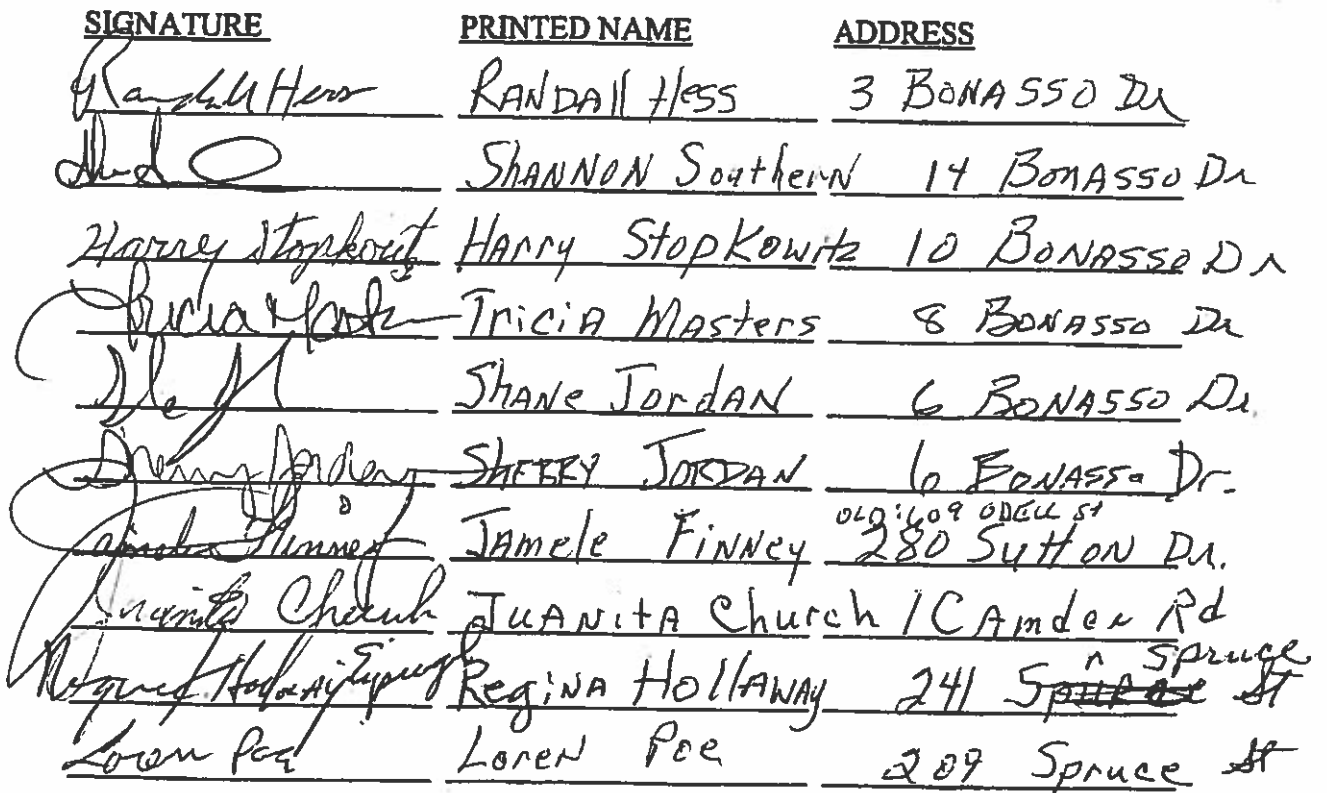 SIGNATURE PRINTED NAME ADDRESS
Randall Hess RANDAll Hess 3 BONASSO Dr
SHANNON Southern 14 BonASSO Dr
Harry Stopkowitz HArry StopKowitz 10 BONASSO Dr
Tricia Masters TriciA MAsters 8 BONASSO Dr
ShANe JordAN 6 BONASSO Dr.
Sherry Jordan SHERRY JORDAN 6 BONASSO Dr.
OLD: 609 ODELL St
Jamele Finney JAmele FiNNey 280 SuttoN Dr.
Juanita Church JUANitA Church 1 CAmden Rd
n Spruce
Regina Hollaway RegiNA HollAwAy 241 St
Loren Poe LoreN Poe 209 Spruce St